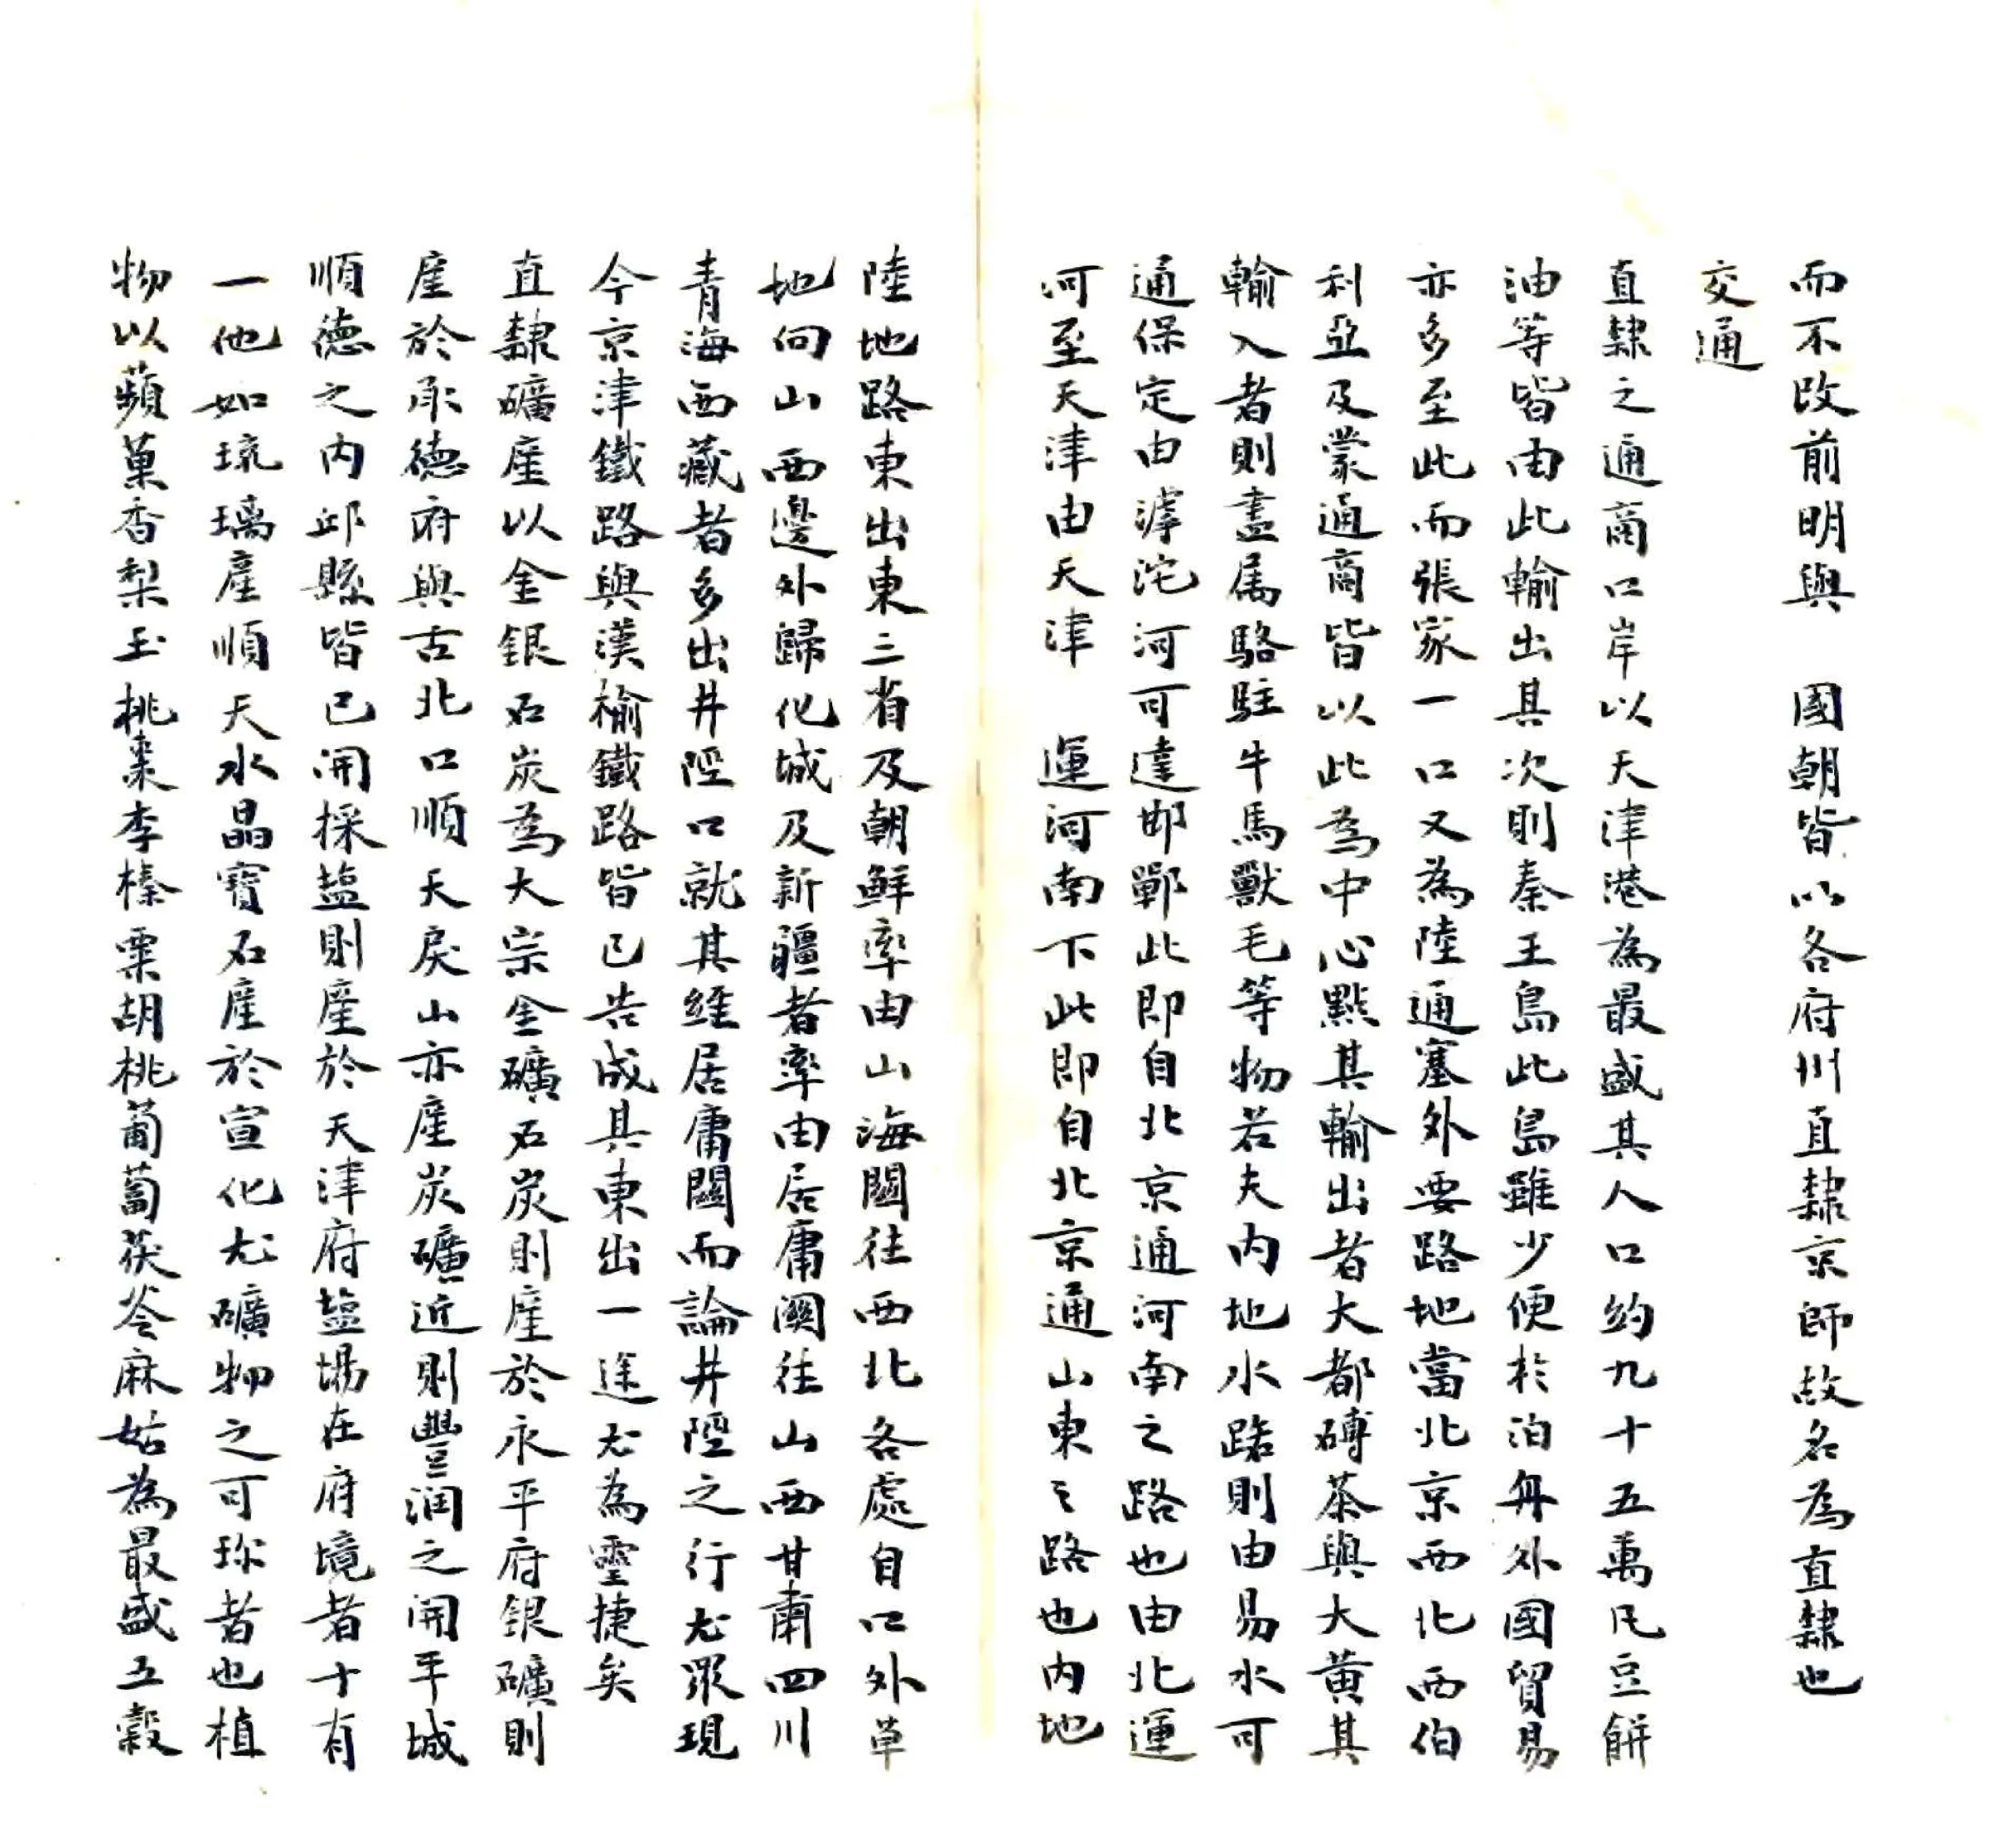 而不改前明與　國朝皆以各府州直隸京師故名為直隸也
交通
直隸之通商口岸以天津港為最盛其人口約九十五萬凡豆餅
油等皆由此輸出其次則秦王島此島雖少便於泊舟外國貿易
亦多至此而張家一口又為陸通塞外要路地當北京西北西伯
利亞及蒙通商皆以此為中心點其輸出者大都磚茶與大黃其
輸入者則盡属駱駐牛馬獸毛等物若夫內地水路則由易水可
通保定由滹沱河可達邯鄲此即自北京通河南之路也由北運
河至天津由天津　運河南下此即自北京通山東之路也內地
陸地路東出東三省及朝鮮率由山海關往西北各處自口外草
地向山西邊外歸化城及新疆者率由居庸關往山西甘肅四川
青海西藏者多出井陘口就其經居庸關而論井陘之行尤眾現
今京津鐵路與漢榆鐵路皆已告成其東出一途尤為靈捷矣
直隸礦產以金銀石炭為大宗金礦石炭則產於永平府銀礦則
產於承德府與古北口順天戾山亦產炭礦近則豐润之開平城
順德之內邱縣皆已開採盐則產於天津府盐場在府境者十有
一他如琉璃產順天水晶寶石產於宣化尤礦物之可珎者也植
物以蘋菓香梨玉桃棗李榛栗胡桃葡萄茯苓麻姑為最盛五穀